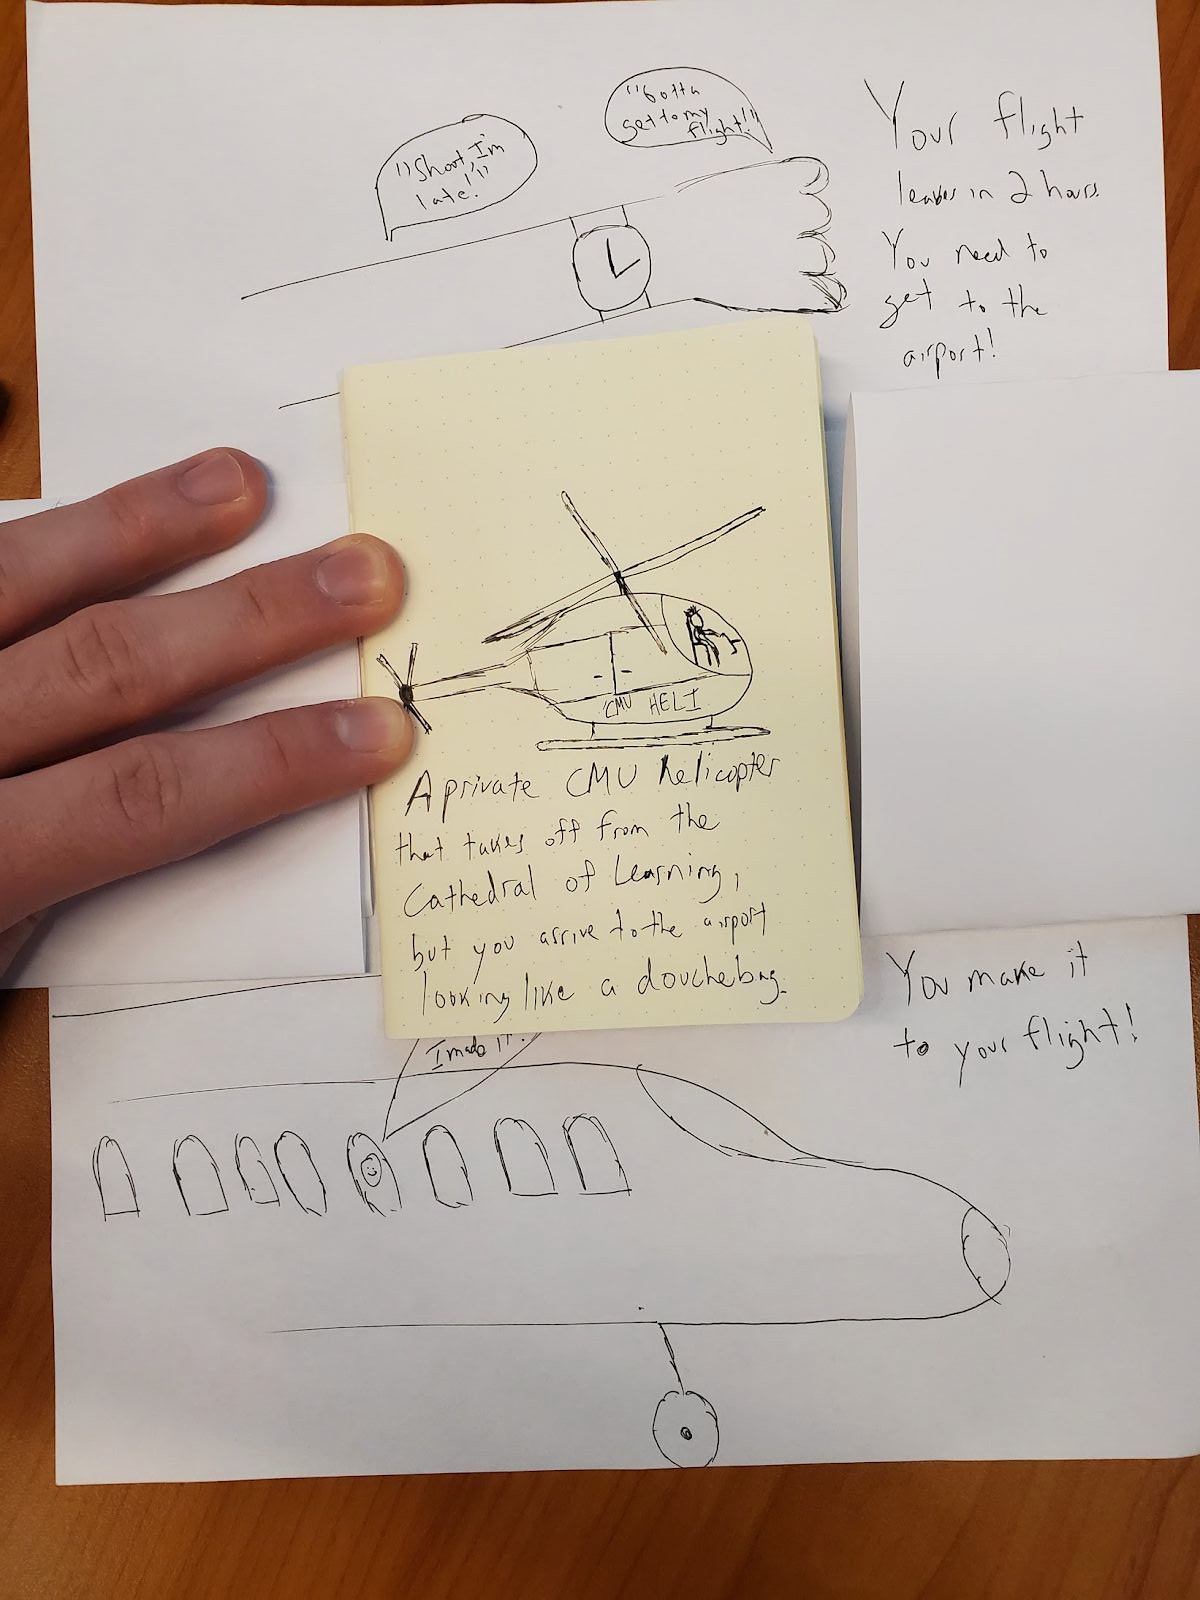 "Shoot, I'm
late!"
"Gotta
get to my
flight!"
Your flight
leaves in 2 hours.
You need to
get to the
airport!
CMU HELI
A private CMU helicopter
that takes off from the
Cathedral of Learning,
but you arrive to the airport
looking like a douchebag.
You make it
to your flight!
I made it!